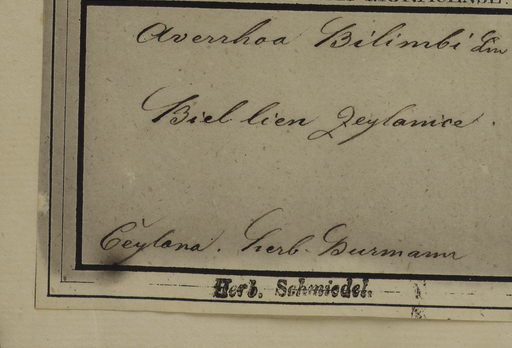 Averrhoa Bilimbi Lin
Biel lien Zeylanice.
Ceylona. Herb. Burmann
Herb. Schmiedel.